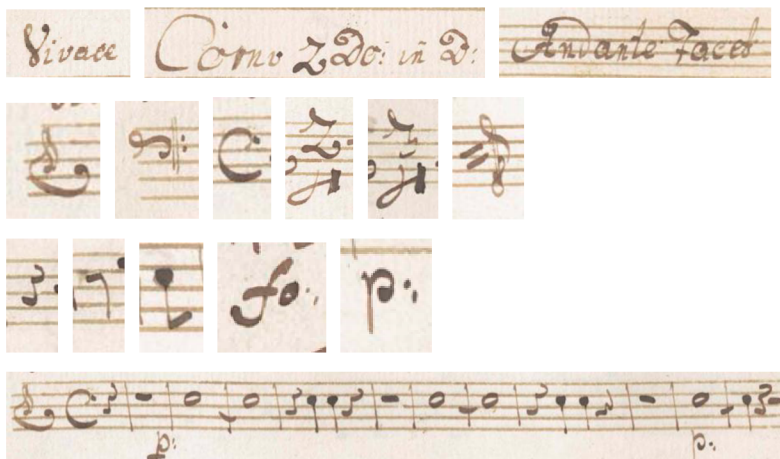 Vivace Corno 2do: in D: Andante Tacet
C
2 2
4 4
fo: p:
C
p: p: